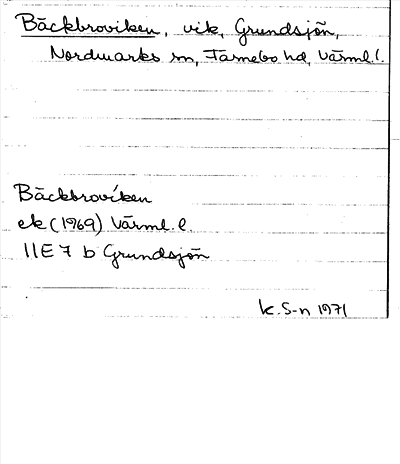 Bäckbroviken, vik, Grundsjön,
Nordmarks sn, Färnebo hd, Värml. l.
Bäckbroviken
ek (1969) Värml. l.
11E 7 b Grundsjön
K. S-n 1971